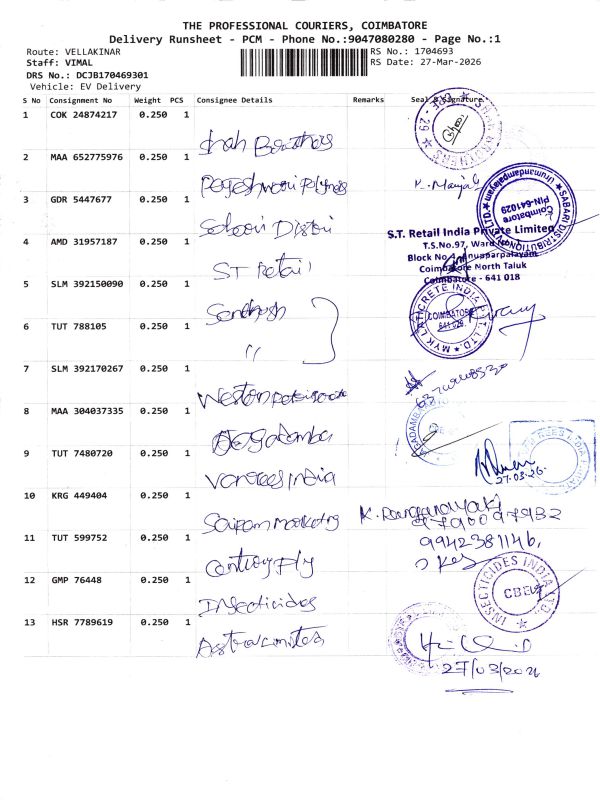 THE PROFESSIONAL COURIERS, COIMBATORE
Delivery Runsheet - PCM - Phone No.:9047080280 - Page No.:1
Route: VELLAKINAR
RS No.: 1704693
Staff: VIMAL
RS Date: 27-Mar-2026
DRS No.: DCJB170469301
Vehicle: EV Delivery
S No Consignment No Weight PCS Consignee Details Remarks Seal & Signature
1 COK 24874217 0.250 1
Shah Brothers
2 MAA 652775976 0.250 1
3 GDR 5447677 0.250 1
SABARI DISTRIBUTION PVT LTD.
Coimbatore
PIN-641029
4 AMD 31957187 0.250 1
ST Retail
S.T. Retail India Private Limited
T.S.No.97, Ward No
Block No
Coimbatore North Taluk
Coimbatore - 641 018
5 SLM 392150090 0.250 1
Santhosh
MYK LATICRETE INDIA LTD
COIMBATORE
641 029
6 TUT 788105 0.250 1
"
7 SLM 392170267 0.250 1
8 MAA 304037335 0.250 1
9 TUT 7480720 0.250 1
India
27.03.26.
10 KRG 449404 0.250 1
Sairam marketing
K. Ranganayaki
9790097932
11 TUT 599752 0.250 1
Century Ply
9942381146
12 GMP 76448 0.250 1
Insecticides
INSECTICIDES INDIA LTD.
CBE
13 HSR 7789619 0.250 1
27/03/2026